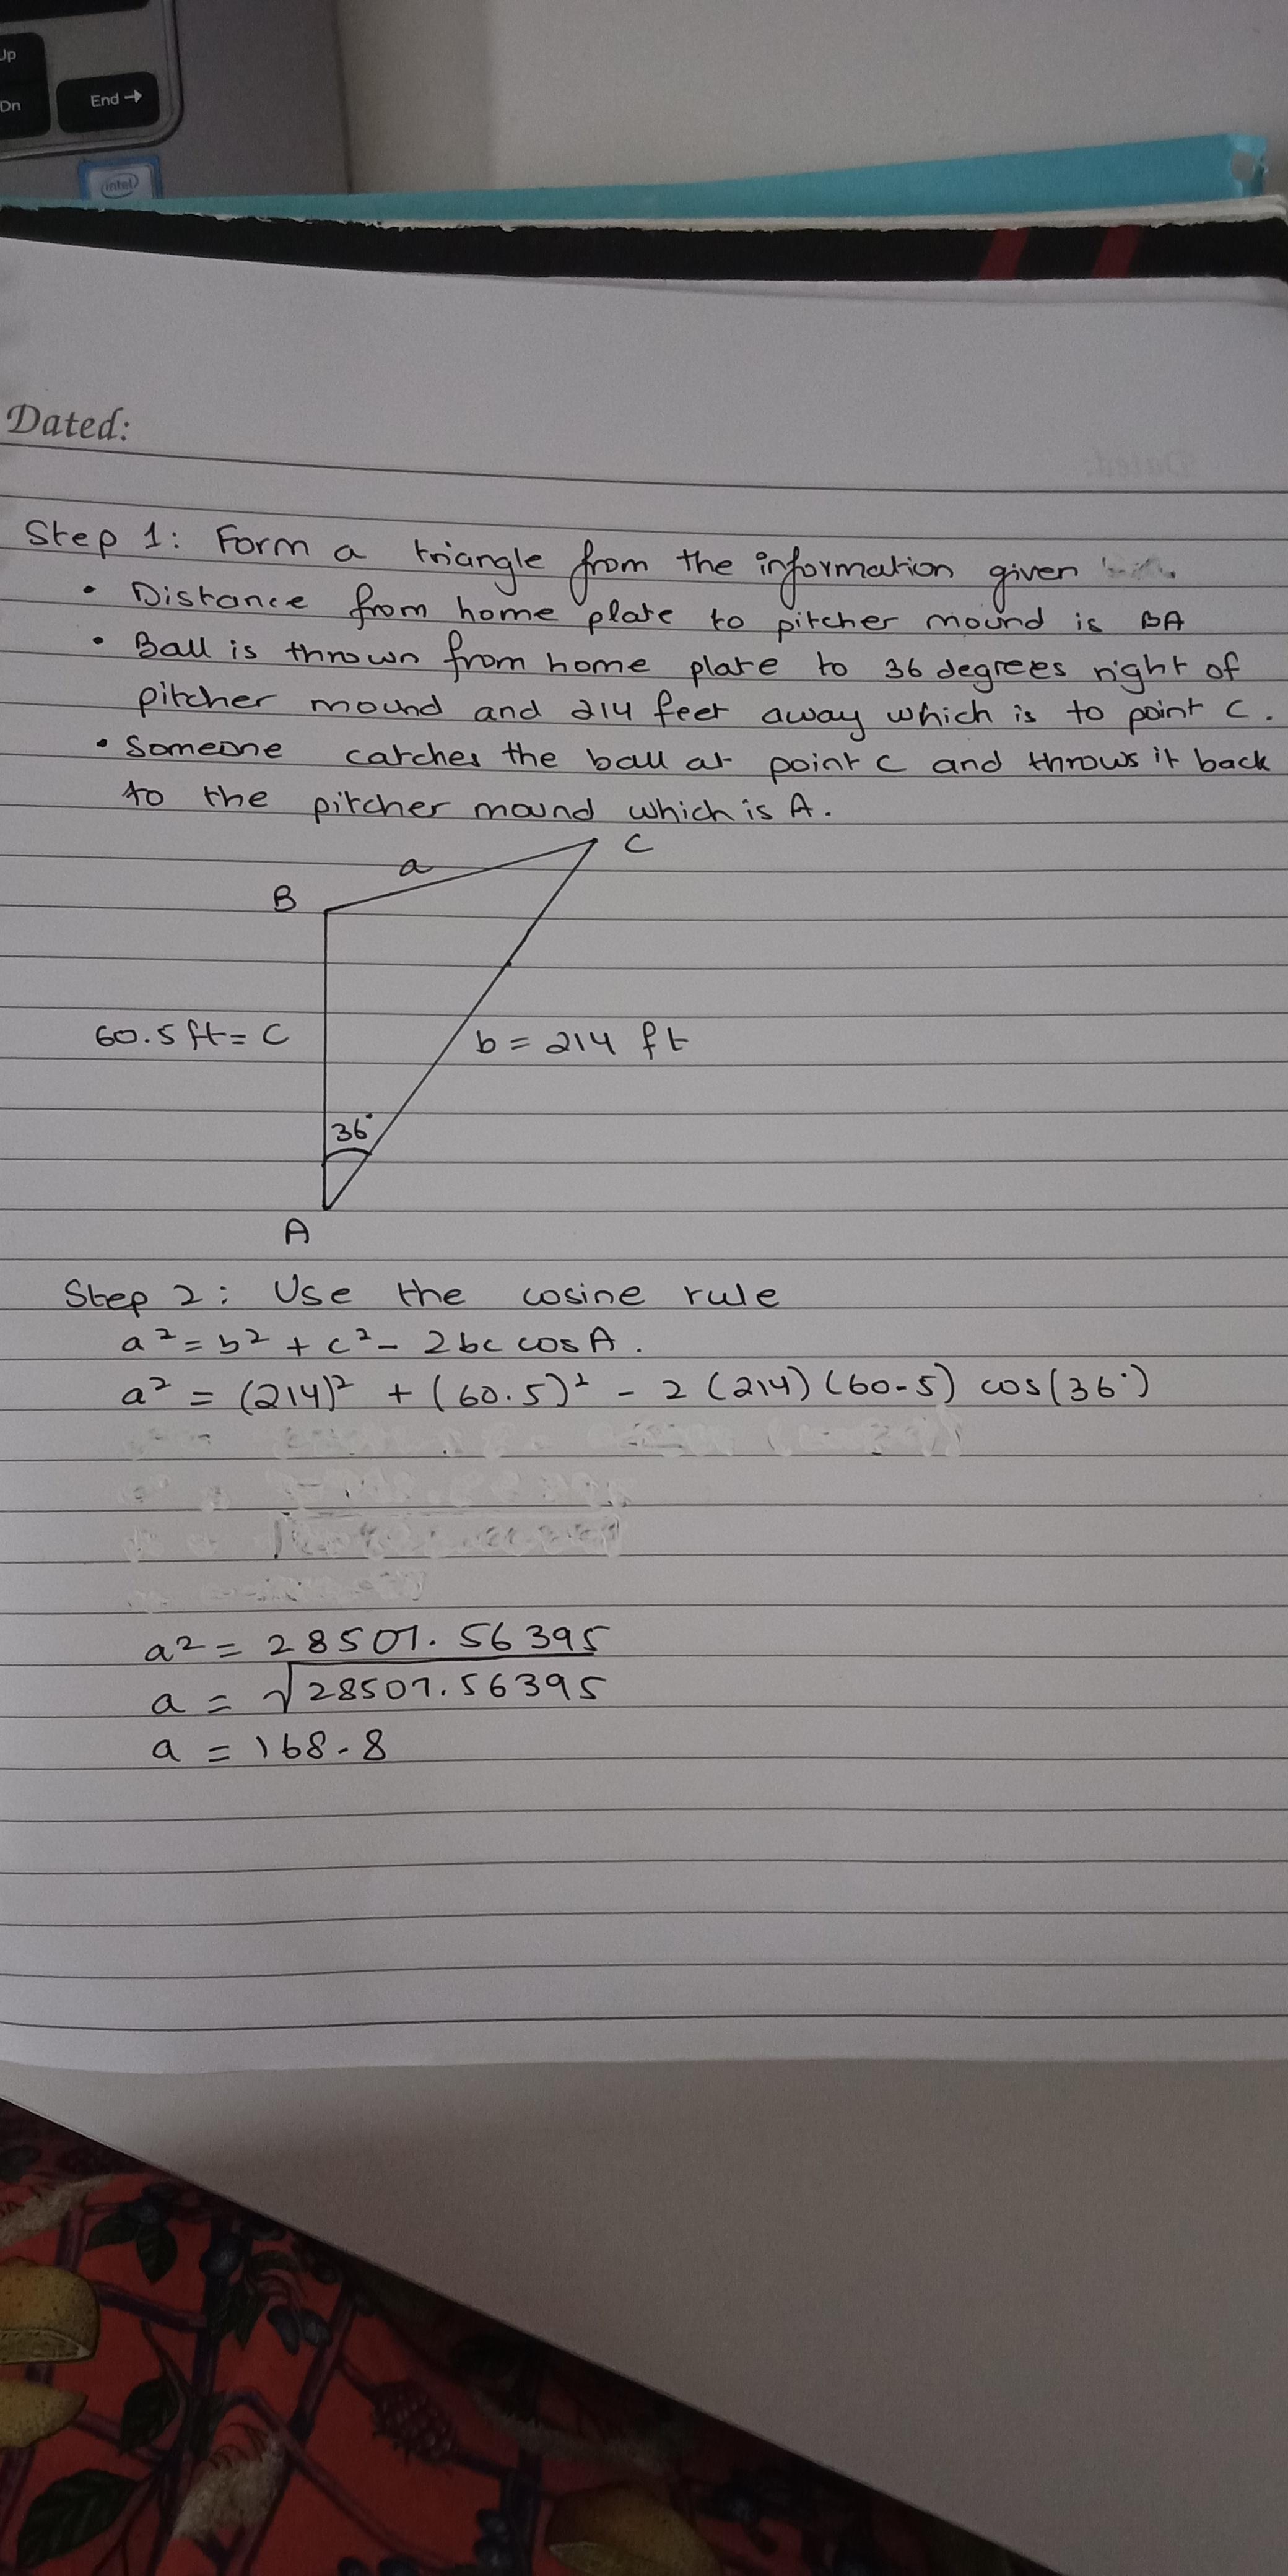 Up
Dn
End →
intel
Dated:
Step 1: Form a triangle from the information given
• Distance from home plate to pitcher mound is BA
• Ball is thrown from home plate to 36 degrees right of
pitcher mound and 214 feet away which is to point C.
• Someone catches the ball at point C and throws it back
to the pitcher mound which is A.
C
a
B
60.5 ft = C
b = 214 ft
36°
A
Step 2: Use the cosine rule
a² = b² + c² - 2bc cos A.
a² = (214)² + (60.5)² - 2 (214) (60.5) cos(36°)
a² = 28507.56395
a = √28507.56395
a = 168.8